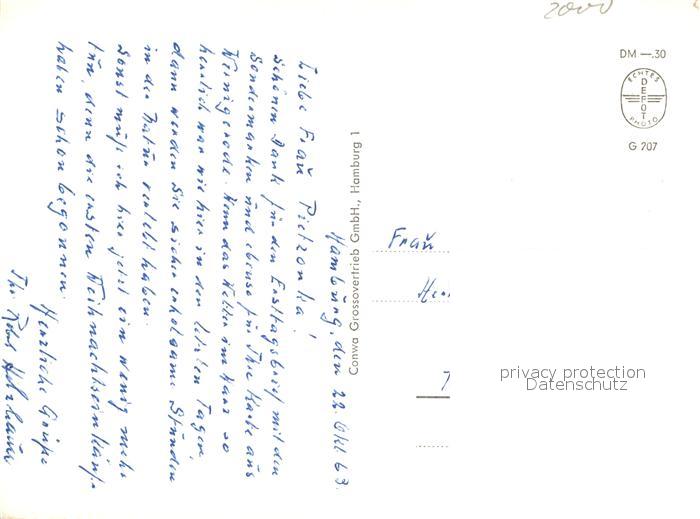 Hamburg, den 22. Okt 63.
Liebe Frau Pietzonka!
Schönen Dank für den Ersttagsbrief mit den
Sondermarken und ebenso für Ihre Karte aus
Wernigerode. Wenn das Wetter im Harz so
herrlich war wie hier in den letzten Tagen,
dann werden Sie sicher erholsame Stunden
in der Natur verlebt haben.
Sonst muß ich hier jetzt ein wenig mehr
tun, denn die ersten Weihnachtseinkäufe
haben schon begonnen.
Herzliche Grüße
Ihr Robert
Conwa Grossovertrieb GmbH., Hamburg 1
2000
DM —.30
ECHTES
DEFOT
PHOTO
G 207
Frau
privacy protection
Datenschutz